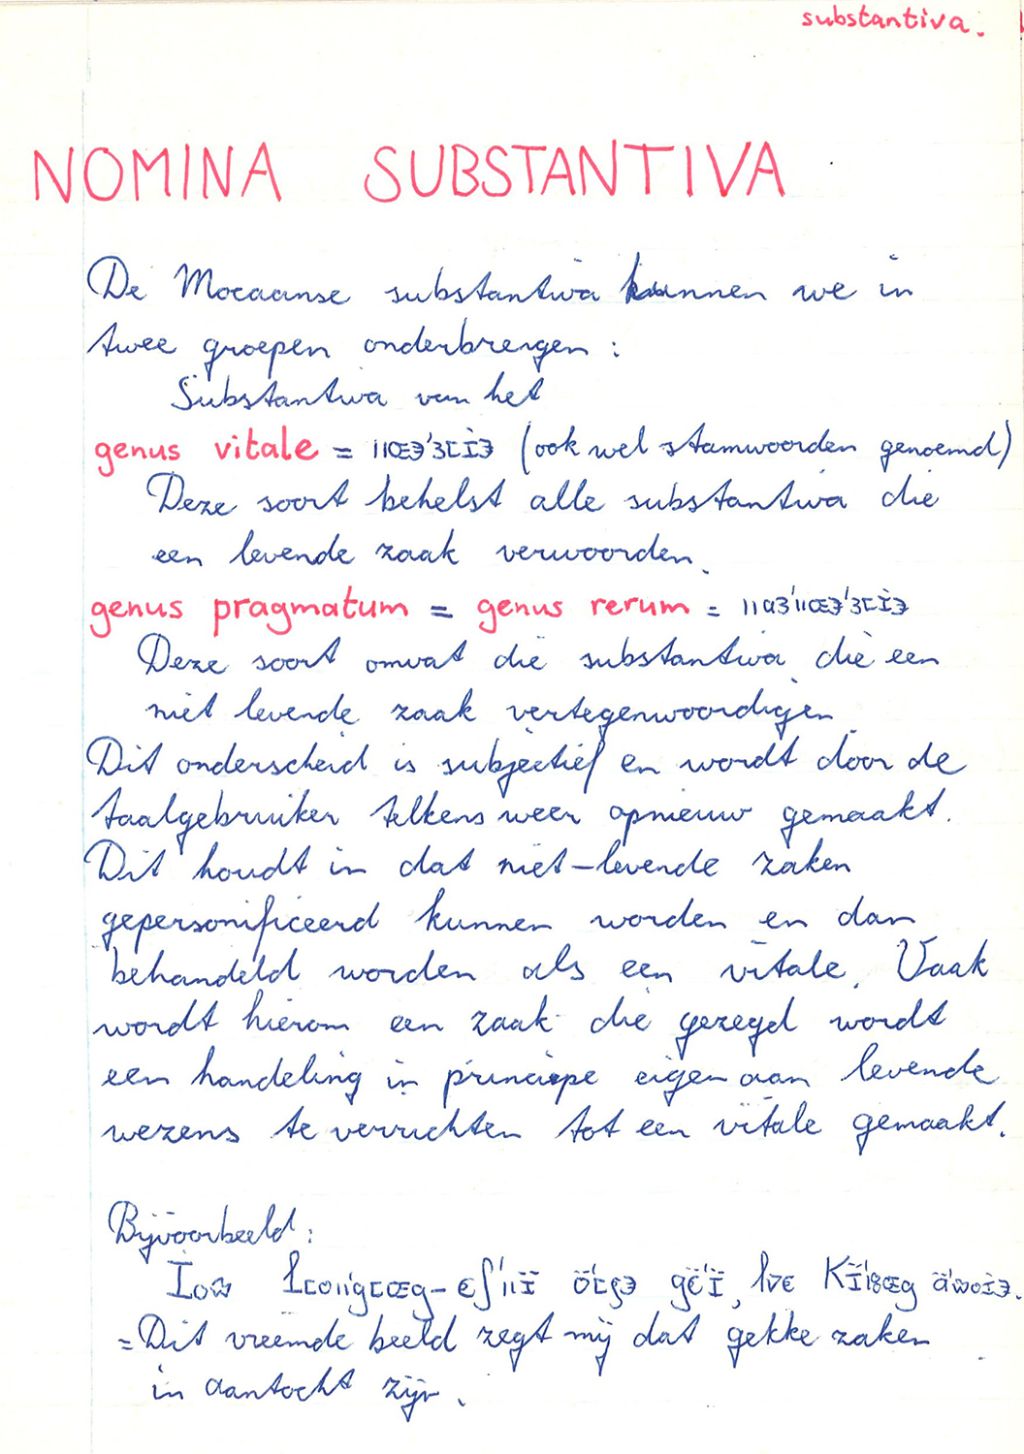 substantiva.
NOMINA SUBSTANTIVA
De Mocaanse substantiva kunnen we in
twee groepen onderbrengen :
Substantiva van het
genus vitale = (ook wel stamwoorden genoemd)
Deze soort behelst alle substantiva die
een levende zaak verwoorden.
genus pragmatum = genus rerum =
Deze soort omvat die substantiva die een
niet levende zaak vertegenwoordigen
Dit onderscheid is subjectief en wordt door de
taalgebruiker telkens weer opnieuw gemaakt.
Dit houdt in dat niet-levende zaken
gepersonificeerd kunnen worden en dan
behandeld worden als een vitale. Vaak
wordt hierom een zaak die gezegd wordt
een handeling in principe eigen aan levende
wezens te verrichten tot een vitale gemaakt.
Bijvoorbeeld :
= Dit vreemde beeld zegt mij dat gekke zaken
in aantocht zijn.